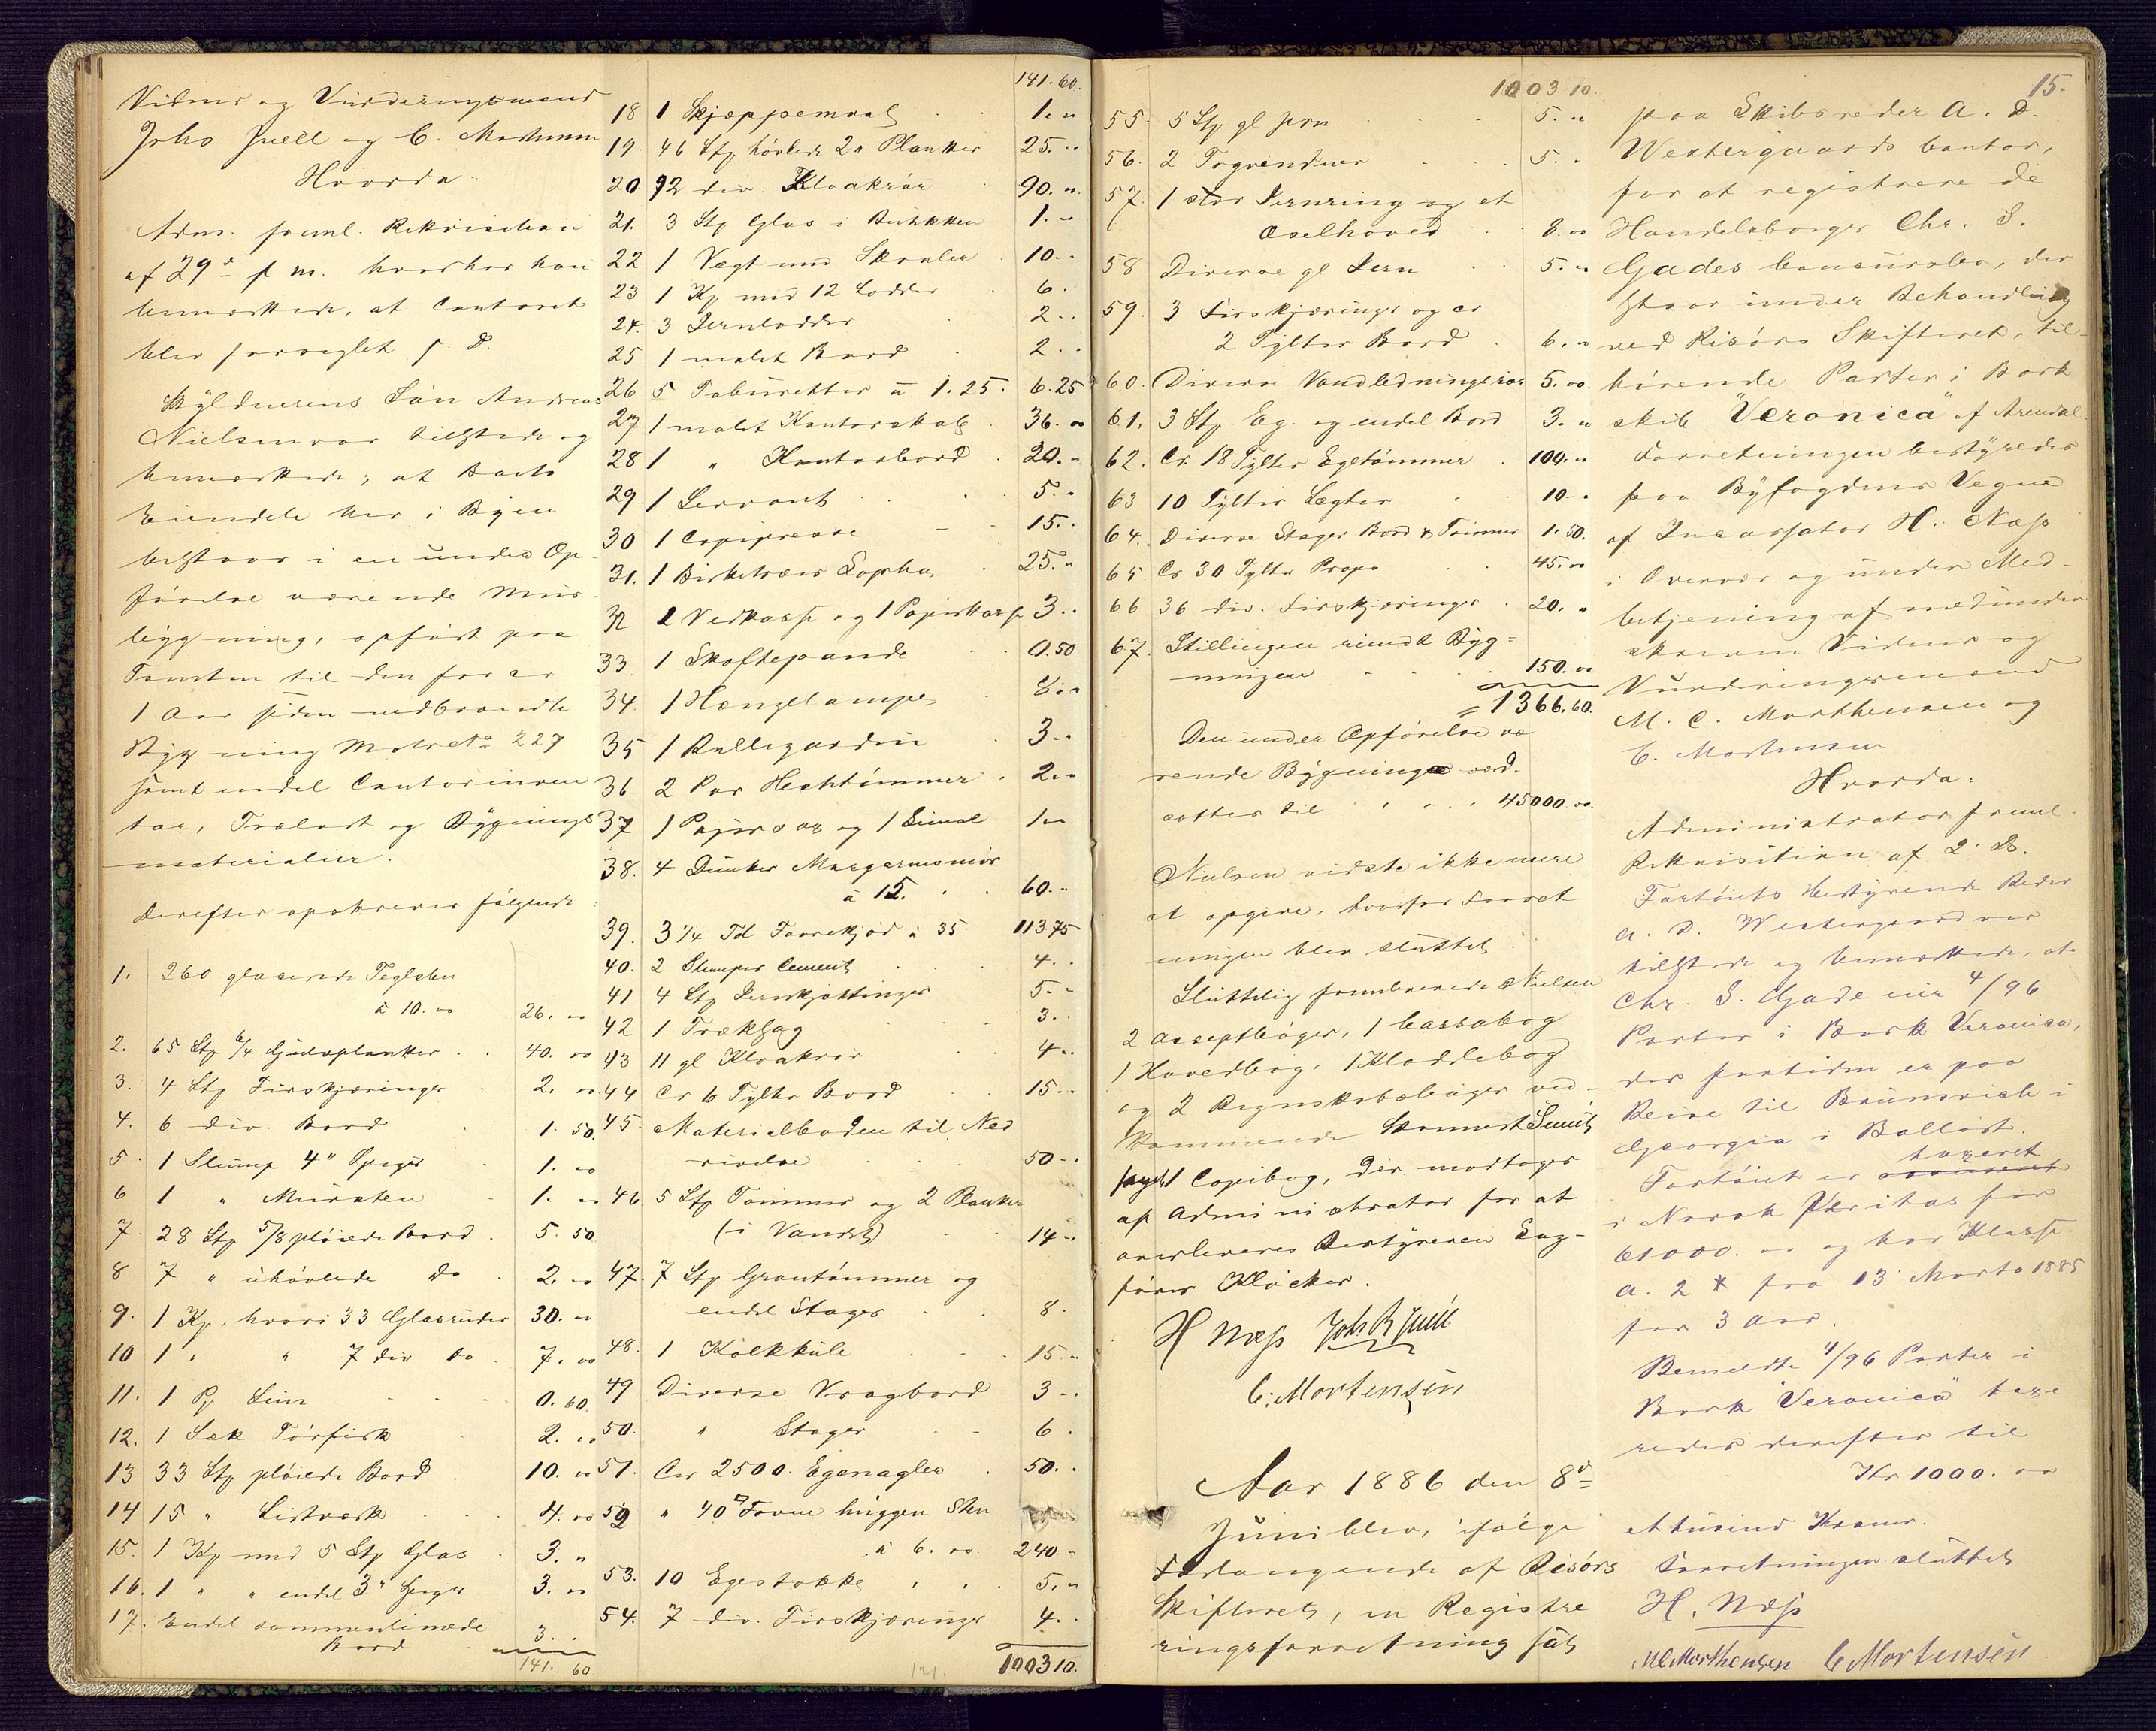 Vidner og Vurderingsmænd
Johs Juell og C. Mortensen
Hvorda
Adm. freml. Rekvisition
af 29de f. m. hvorhos han
bemærkede, at Contoret
blev forseglet s. D.
Skyldnerens Søn Andreas
Nielsen var tilstede og
bemærkede, at Boets
Eiendele her i Byen
bestaar i en under Op-
førelse værende Mur-
bygning, opført paa
Tomten til den for ca
1 Aar siden nedbrændte
Bygning Matr No 227
samt endel Contorinven
tar, Trælast og Bygnings
materialier.
Derefter opskreves følgende:
1. 260 glaserede Teglsten
à 10.00 26. 00
2. 65 Stp 6/4 Gulvplanker 40. 00
3. 4 Stp Firskjæringer 2. 00
4. 6 div. Bord 1. 50
5. 1 Slump 4" Spiger 1. 00
6 1 " Mursten 1. 00
7. 28 Stp 5/8 pløiede Bord 5. 50
8 7 " uhøvlede Do 2. 00
9. 1 Kp. hvori 33 Glasruder 30. 00
10 1 " " 7 div Do 7. 00
11. 1 Pj Lim 0. 60
12. 1 Sæk Tørfisk 2. 00
13 33 Stp pløiede Bord 10. 00
14 15 " Listværk 4. 00
15. 1 Kp med 5 Stp Glas 3. "
16. 1 " " endel 3" Spiger 3. 00
17. Endel sammenlimede
Bord 3. .
141. 60
141. 60
18 1 Skjæppemaal 1. "
19. 46 Stp høvlede 2" Planker 25. "
20 92 div. Kloakrør 90. "
21. 3 Stp Glas i Butikken 1. "
22 1 Vægt med Skaaler 10. .
23 1 Kp med 12 Lodder 6.
24. 3 Jernlodder 2. .
25 1 malet Bord 2. .
26 5 Taburetter à 1.25 6.25
27 1 malet Kontorskab 36. 00
28 1 " Kontorbord 20. "
29 1 Servant 5. .
30 1 Copipresse 15. .
31. 1 Birketræs Sopha 25. "
32 1 Vedkasse og 1 Papirkasse 3. .
33 1 Skaftepande 0.50
34. 1 Hængelampe 8. "
35 1 Rullegardin 3. .
36 2 Par Hestetømmer 2. "
37 1 Papirsax og 1 Lineal 1"
38. 4 Dunker Margarinsmør
à 15. 60. "
39. 3 1/4 Td Faarekjød à 35 113.75
40. 2 Slumper Cement 4. .
41 4 Stp Jernkjættinger 5. .
42 1 Træksag 3. .
43 11 gl Kloakrør 4. .
44 Ca 6 Tylter Bord 15. .
45. Materialboden til Ned
rivelse 50. .
46. 5 Stp Tømmer og 2 Planker
(i Vandet) 14. .
47. 7 Stp Grantømmer og
endel Stager 8.
48. 1 Kalkkule 15. "
49 Diverse Vragbord 3. .
50. " Stager 6.
51. Ca 2500 Egenagler 50. .
52 " 40 □ Favne huggen Sten
à 6. 00. 240. -
53. 10 Egestokke 5. "
54. 7 div. Firskjæringer 4. .
1003 10.
1003 10.
55. 5 Stp gl Jern 5. "
56. 2 Tagrender 5. .
57. 1 stor Jernring og et
Æselhoved 8. 00
58 Diverse gl Jern 5. "
59. 3 Firskjæringer og ca
2 Tylter Bord 6. "
60. Diverse Vandledningsrør 5. 00.
61. 3 Stp Eg. og endel Bord 3. "
62. Ca 18 Tylter Egetømmer 100. "
63 10 Tylter Lægter 10. .
64. Diverse Stager Bord & Tømmer 1. 50.
65. Ca 30 Tylter Props 45. 00
66 36 div. Firskjæringer 20. "
67. Stillingen rundt Byg=
ningen 150. 00
= 1366. 60.
Den under Opførelse væ
rende Bygning værd.
sattes til 45000. 00.
Nielsen vidste ikke mere
at opgive, hvorfor Forret
ningen blev sluttet.
Sluttelig fremleverede Nielsen
2 Acceptbøger, 1 Cassabog
1 Hovedbog, 1 Kladdebog
og 2 Regnskabsbøger ved-
kommende
samt 1 Copibog, der modtoges
af Administrator for at
overleveres Bestyreren Sag-
fører Kløcker.
H Næss Joh B Juell
C. Mortensen
Aar 1886 den 8de
Juni blev, ifølge
Forlangende af Risørs
Skifteret, en Registre
ringsforretning sat
15.
paa Skibsreder A. D.
Westergaards Contor,
for at registrere de
Handelsborger Chr. S.
Gades Concursbo, der
staar under Behandling
ved Risørs Skifteret, til-
hørende Parter i Bark
skib "Veronica" af Arendal.
Forretningen bestyredes
paa Byfogdens Vegne
af Incassator H. Næss
i Overvær og under Med-
betjening af medunder
skrevne Vidner og
Vurderingsmænd
M. C. Morthensen og
C. Mortensen
Hvorda:
Administrator freml.
Rekvisition af 2. Ds.
Fartøiets Bestyrende Reder
A. D. Westergaard var
tilstede og bemærkede, at
Chr. S. Gade eier 4/96
Parter i Bark Veronica,
der fortiden er paa
Reise til Brunsvick i
Georgia i Ballast.
taxeret
Fartøiet er assureret
i Norsk Veritas for
61000. 00 og har Klasse
A. 2 * fra 13 Marts 1885
for 3 Aar.
Bemeldte 4/96 Parter i
Bark "Veronica" taxe
redes derefter til
Kr 1000. 00
et tusind Kroner.
Forretningen sluttet
H. Næss
M C Morthensen C Mortensen